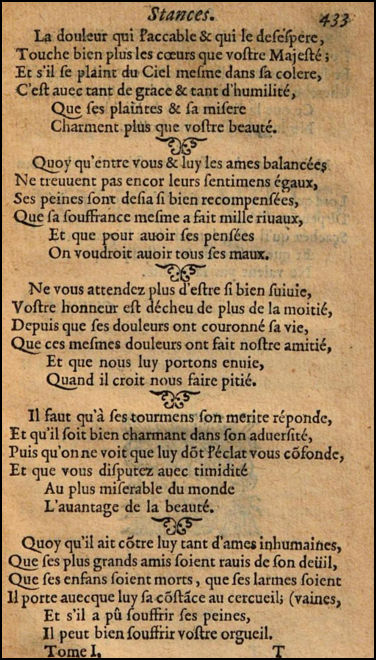 Stances. 433
La douleur qui l'accable & qui le deſeſpere,
Touche bien plus les cœurs que voſtre Majeſté;
Et s'il ſe plaint du Ciel meſme dans ſa colere,
C'eſt auec tant de grace & tant d'humilité,
Que ſes plaintes & ſa miſere
Charment plus que voſtre beauté.
Quoy qu'entre vous & luy les ames balancées
Ne treuuent pas encor leurs ſentimens égaux,
Ses peines ſont deſia ſi bien recompenſées,
Que ſa ſouffrance meſme a fait mille riuaux,
Et que pour auoir ſes penſées
On voudroit auoir tous ſes maux.
Ne vous attendez plus d'eſtre ſi bien ſuiuie,
Voſtre honneur eſt décheu de plus de la moitié,
Depuis que ſes douleurs ont couronné ſa vie,
Que ces meſmes douleurs ont fait noſtre amitié,
Et que nous luy portons enuie,
Quand il croit nous faire pitié.
Il faut qu'à ſes tourmens ſon merite réponde,
Et qu'il ſoit bien charmant dans ſon aduerſité,
Puis qu'on ne voit que luy dõt l'éclat vous cõfonde,
Et que vous diſputez auec timidité
Au plus miſerable du monde
L'auantage de la beauté.
Quoy qu'il ait cõtre luy tant d'ames inhumaines,
Que ſes plus grands amis ſoient rauis de ſon deüil,
Que ſes enfans ſoient morts, que ſes larmes ſoient
Il porte auecque luy ſa cõſtãce au cercueil; (vaines,
Et s'il a pû ſouffrir ſes peines,
Il peut bien ſouffrir voſtre orgueil.
Tome I. T